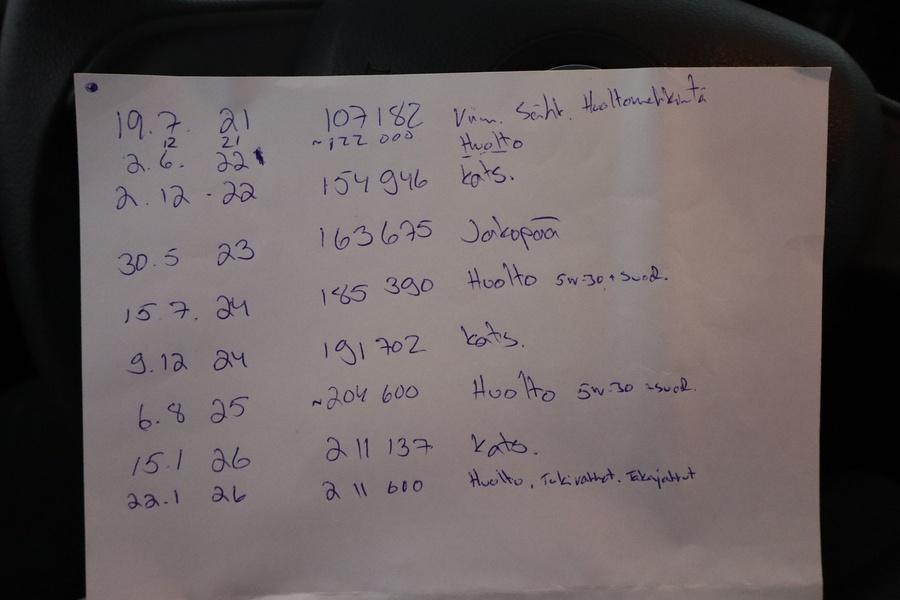 19.7. 21 107182 Viim. Sähk. Huoltomerkintä
12 21 ~122 000 Huolto
2.6. 22
2.12 -22 154 946 kats.
30.5 23 163675 Jakopää
15.7. 24 185 390 Huolto 5w-30 + suod.
9.12 24 191 702 kats.
6.8 25 ~204 600 Huolto 5w-30 +suod.
15.1 26 211 137 kats.
22.1 26 211 600 Huolto, Tukivarret. Takajarrut